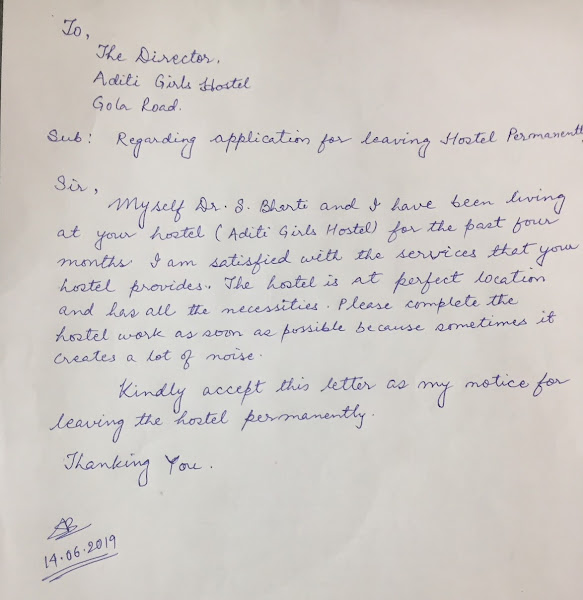 To,
The Director,
Aditi Girls Hostel
Gola Road.
Sub: Regarding application for leaving Hostel Permanently
Sir,
Myself Dr. S. Bharti and I have been living
at your hostel (Aditi Girls Hostel) for the past four
months. I am satisfied with the services that your
hostel provides. The hostel is at perfect location
and has all the necessities. Please complete the
hostel work as soon as possible because sometimes it
creates a lot of noise.
Kindly accept this letter as my notice for
leaving the hostel permanently.
Thanking You.
14.06.2019